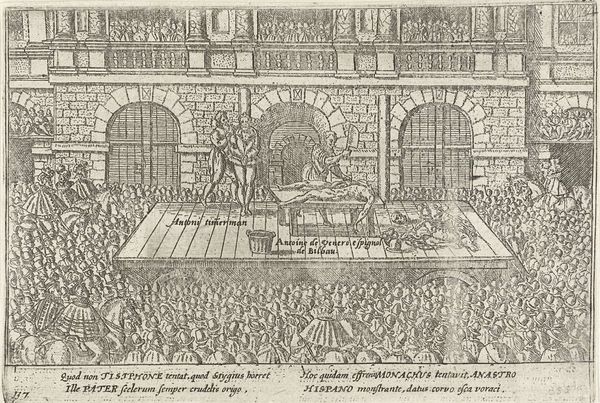 Antoni timerman
Antoine de Venero espignol
de Bilbau.
Quod non TISIPHONE tentat, quod Stygius horret
Ille PATER scelerum semper crudelis origo,
Hoc quidam effrem MONACHUS tentavit, ANASTRO
HISPANO monstrante, datus corvo esca voraci.
117